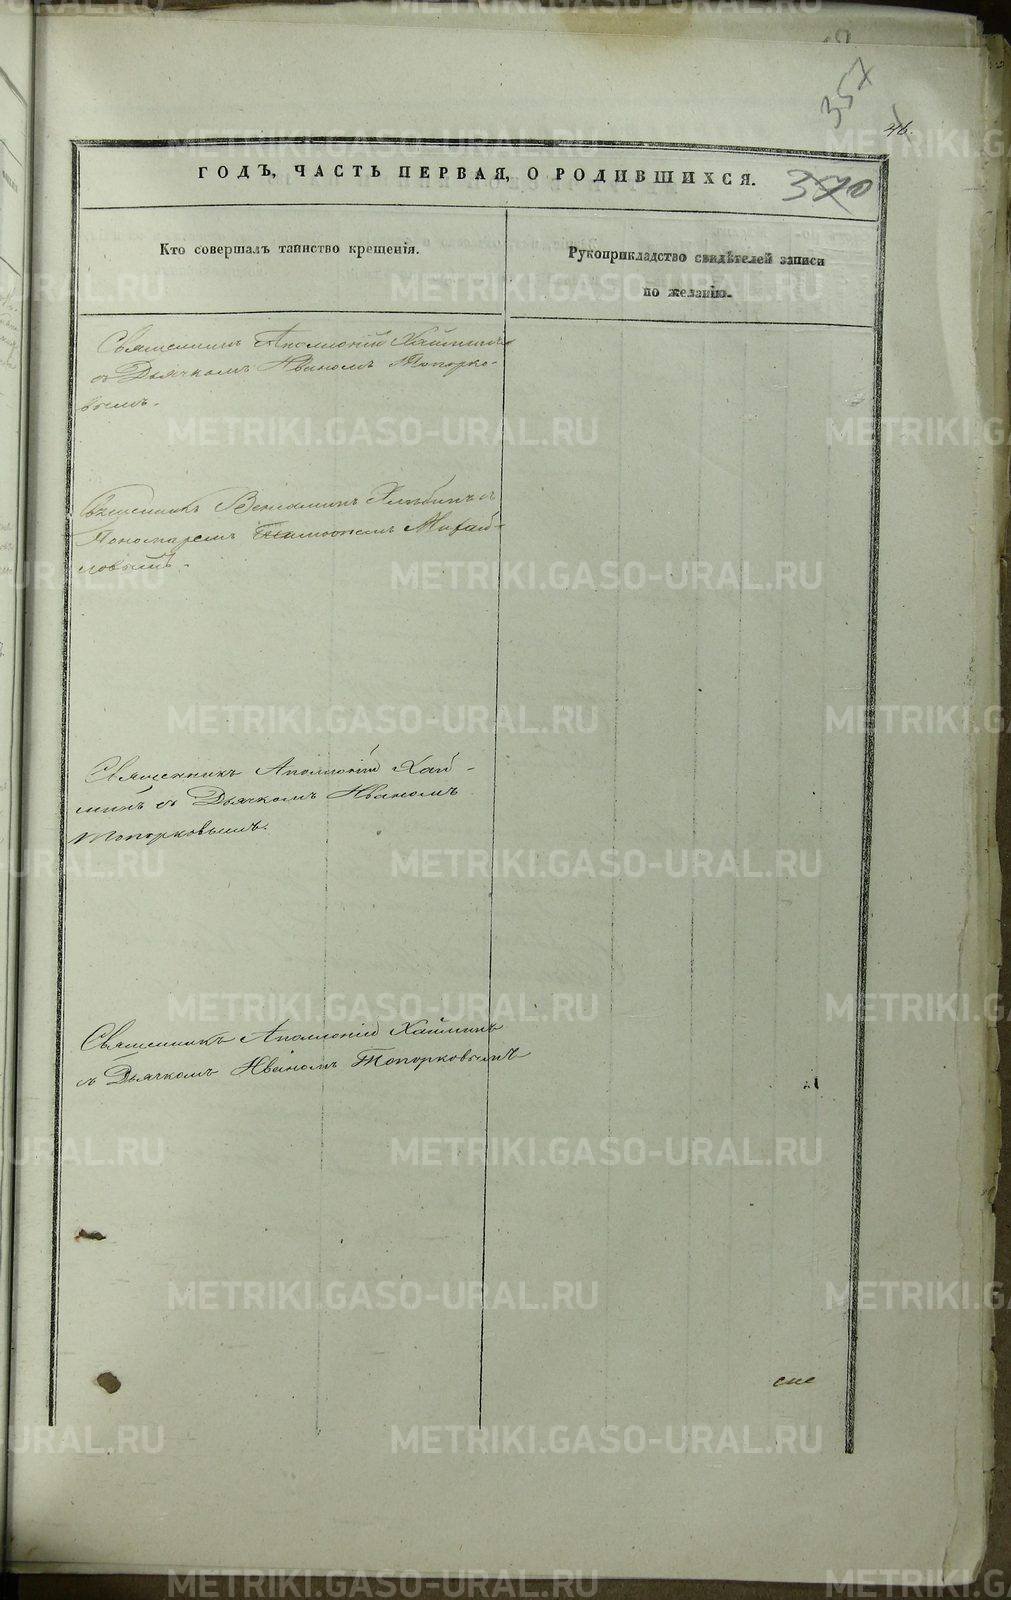 357
46.
ГОДЪ, ЧАСТЬ ПЕРВАЯ, О РОДИВШИХСЯ.
370
Кто совершалъ таинство крещенія.
Рукоприкладство свидѣтелей записи
по желанію.
Священникъ Аполлоній Хайминъ
съ Дьячкомъ Иваномъ Топорко-
вымъ.
Священникъ Веніаминъ Хлѣбинъ съ
Пономаремъ Тимоѳеемъ Михай-
ловымъ.
Священникъ Аполлоній Хай-
минъ съ Дьячкомъ Иваномъ
Топорковымъ.
Священникъ Аполлоній Хайминъ
съ Дьячкомъ Иваномъ Топорковымъ
METRIKI.GASO-URAL.RU